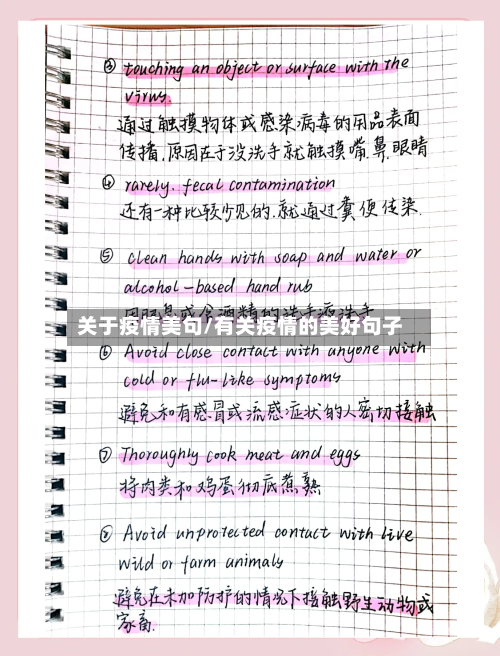 ③ touching an object or surface with the
virus.
通过触摸物体或感染病毒的用品表面
传播,原因在于没洗手就触摸嘴.鼻.眼睛
④ rarely. fecal contamination
还有一种比较少见的.就通过粪便传染.
⑤ clean hands with soap and water or
alcohol-based hand rub
用肥皂或含酒精的洗手液洗手
关于疫情美句/有关疫情的美好句子
⑥ Avoid close contact with anyone with
cold or flu-like symptoms
避免和有感冒或流感症状的人密切接触
⑦ Thoroughly cook meat and eggs
将肉类和鸡蛋彻底煮熟
⑧ Avoid unprotected contact with live
wild or farm animals
避免在未加防护的情况下接触野生动物或
家畜.